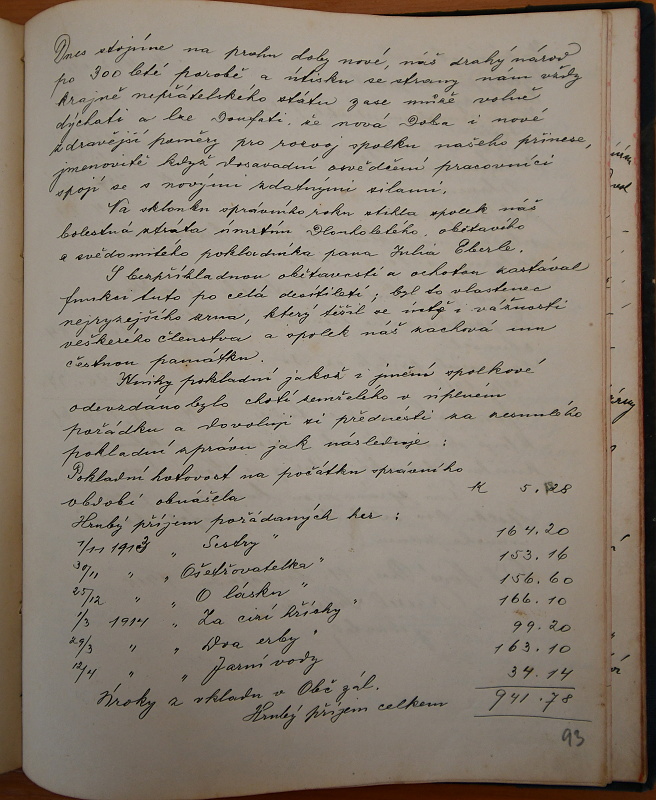 Dnes stojíme na prahu doby nové, náš drahý národ
po 300 leté porobě a útisku se strany nám vždy
krajně nepřátelského státu zase může volně
dýchati a lze doufati, že nová doba i nové
zdravější poměry pro rozvoj spolku našeho přinese,
jmenovitě když dosavadní osvědčení pracovníci
spojí se s novými zdatnými silami.
Na sklonku správního roku stihla spolek náš
bolestná ztráta úmrtím dlouholetého, obětavého
a svědomitého pokladníka pana Julia Eberle.
S bezpříkladnou obětavostí a ochotou zastával
funkci tuto po celá desítiletí; byl to vlastenec
nejryzejšího zrna, který těšil se úctě i vážnosti
veškerého členstva a spolek náš zachová mu
čestnou památku.
Knihy pokladní jakož i jmění spolkové
odevzdáno bylo chotí zemřelého v úplném
pořádku a dovoluji si přednésti za zesnulého
pokladní zprávu jak následuje:
Pokladní hotovost na počátku správního
období obnášela K 5.28
Hrubý příjem pořádaných her:
7/11 1913 „ Sestry " 164.20
30/11 " „ Ošetřovatelka " 153.16
25/12 " „ O lásku " 156.60
1/3 1914 „ Za cizí hříchy " 166.10
29/3 " „ Dva erby " 99.20
12/4 " „ Jarní vody 163.10
Úroky z vkladu v Obč. zál. 34.14
Hrubý příjem celkem 941.78
93